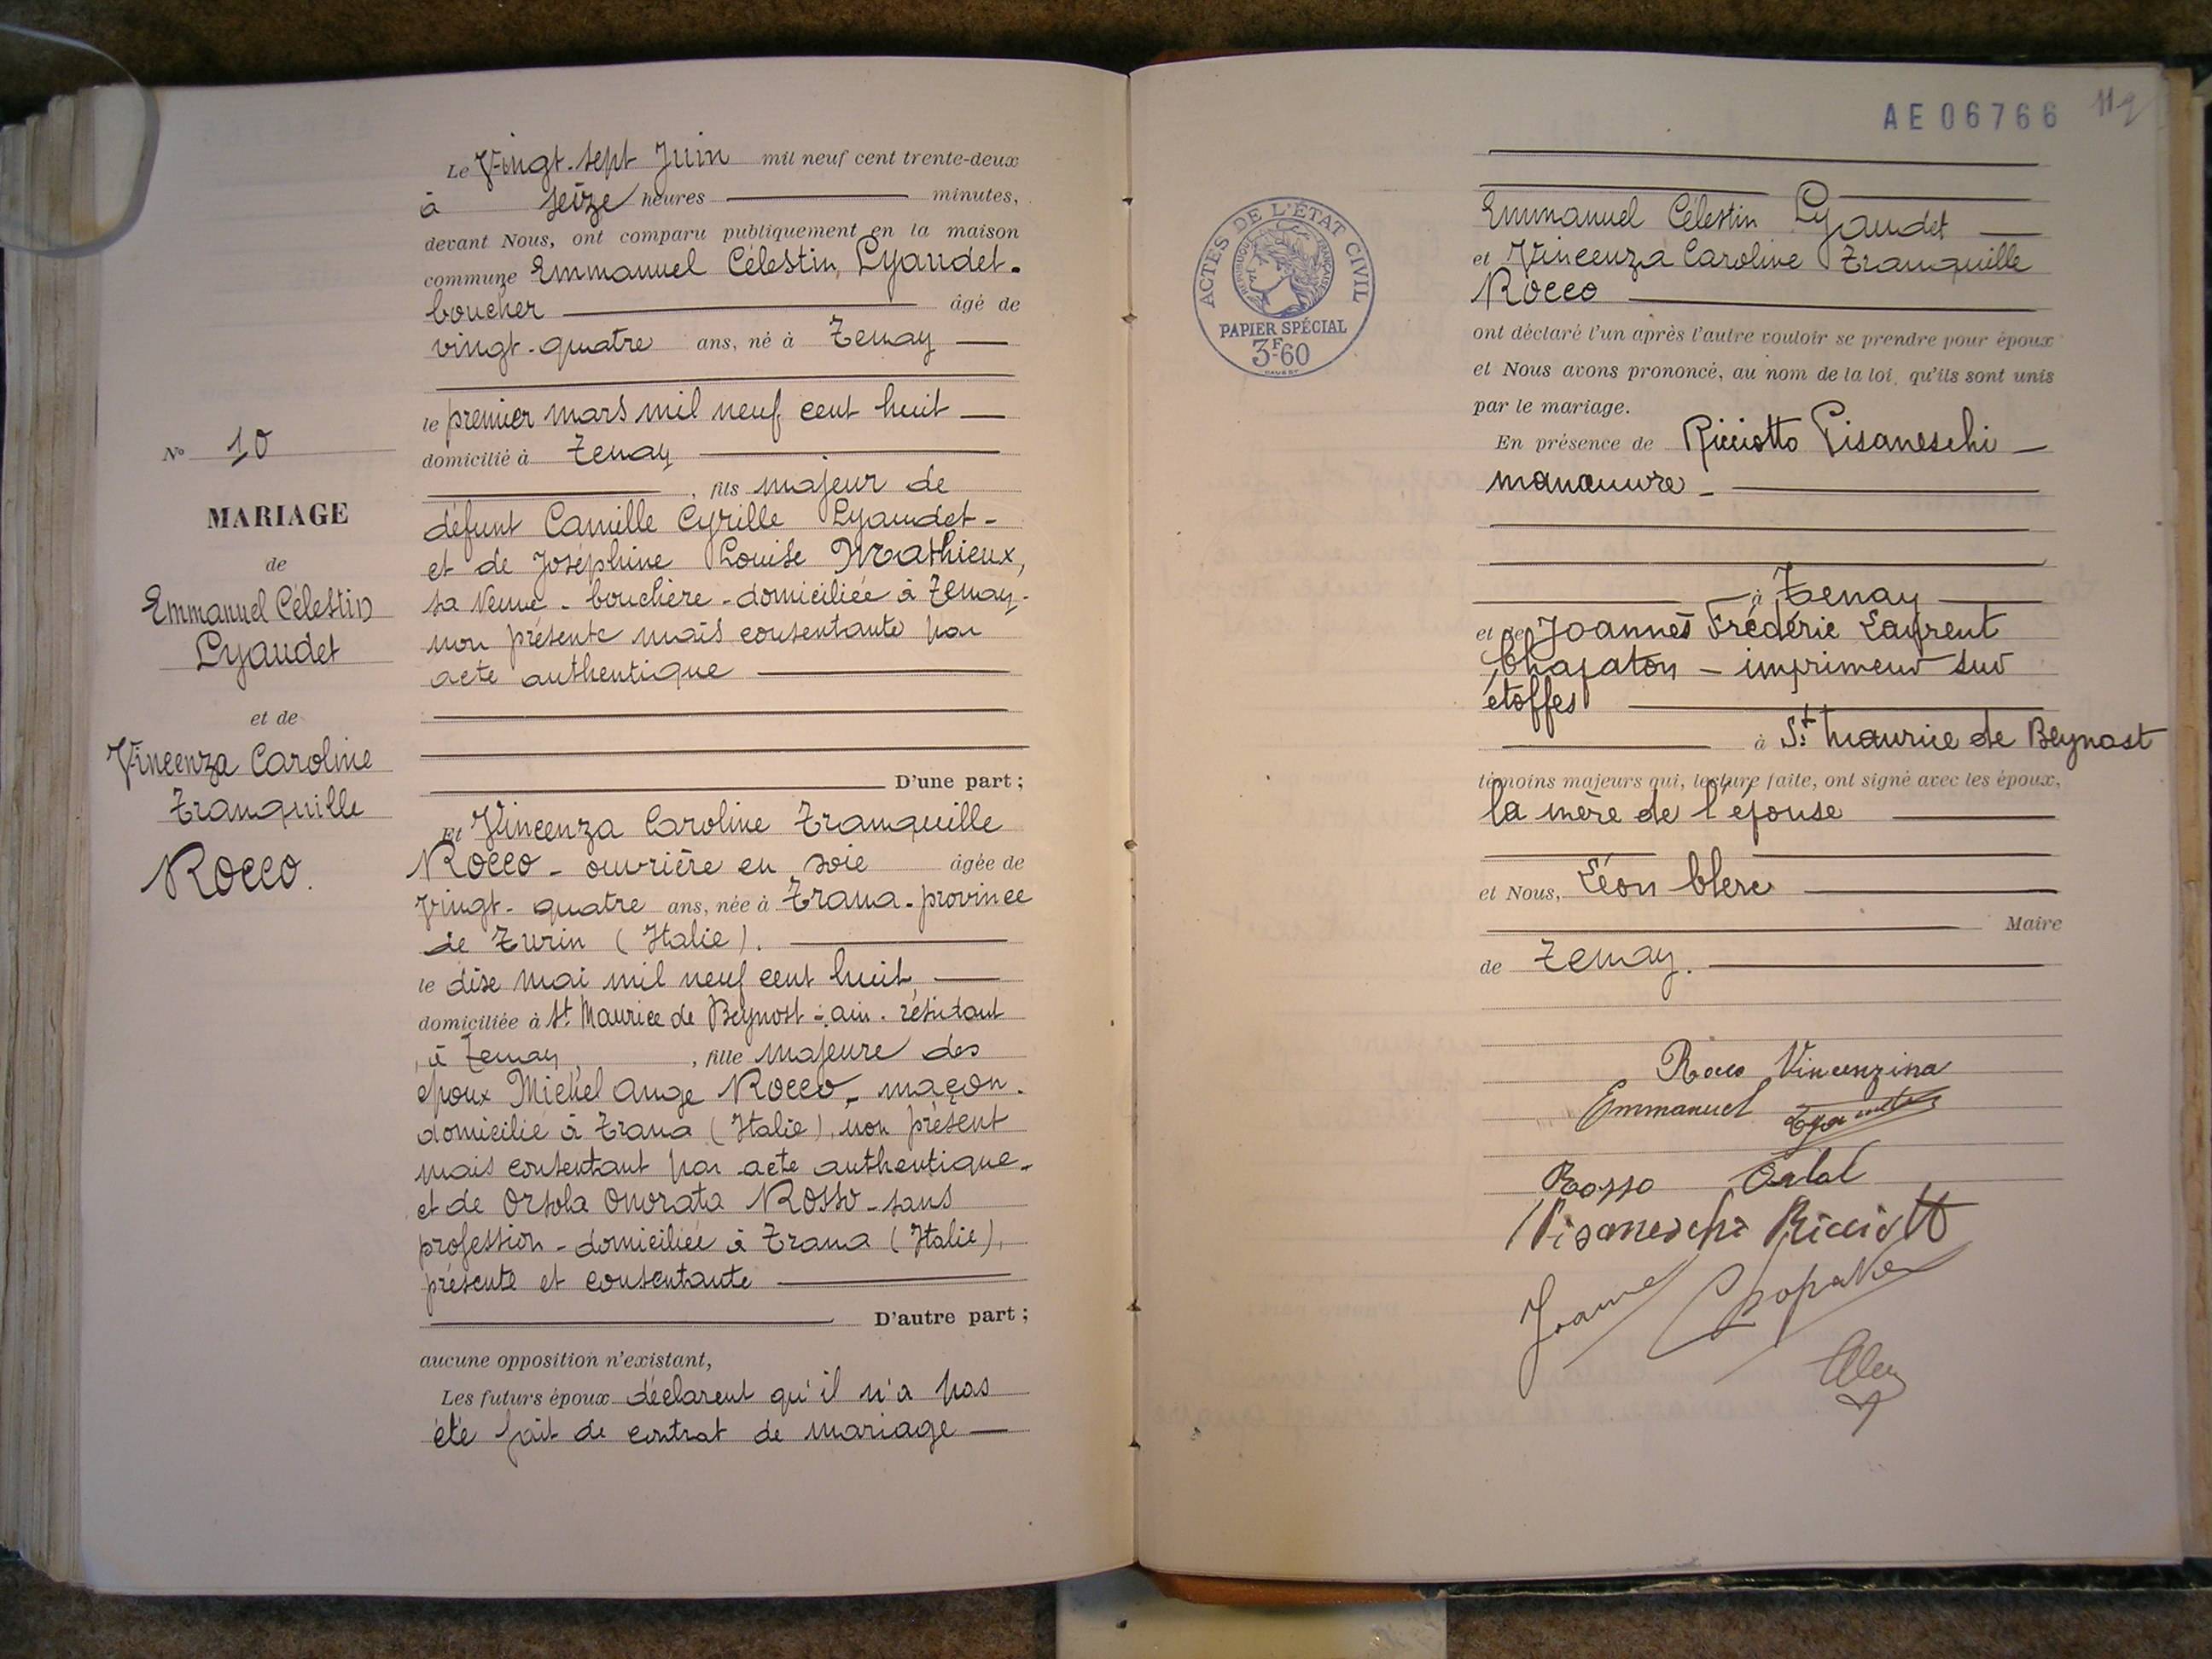 N° 10
MARIAGE
de
Emmanuel Célestin
Lyaudet
et de
Vincenza Caroline
Tranquille
Rocco.
Le Vingt-sept Juin mil neuf cent trente-deux
à seize heures minutes,
devant Nous, ont comparu publiquement en la maison
commune Emmanuel Célestin, Lyaudet.
boucher âgé de
vingt-quatre ans, né à Tenay
le premier mars mil neuf cent huit
domicilié à Tenay
, fils majeur de
défunt Camille Cyrille Lyaudet-
et de Joséphine Louise Mathieux,
sa veuve - bouchère - domiciliée à Tenay-
non présente mais consentante par
acte authentique
D'une part ;
Et Vincenza Caroline Tranquille
Rocco - ouvrière en soie âgée de
vingt-quatre ans, née à Trana - province
de Turin (Italie).
le dise mai mil neuf cent huit,
domiciliée à St. Maurice de Beynost - ain. résidant
, à Tenay, , fille majeure des
époux Michel Ange Rocco - maçon.
domicilié à Trana (Italie), non présent
mais consentant par acte authentique-
et de Orsola Onorata Rosso - sans
profession - domiciliée à Trana (Italie),
présente et consentante
D'autre part ;
aucune opposition n'existant,
Les futurs époux déclarent qu'il n'a pas
été fait de contrat de mariage
AE 06766 112
ACTES DE L'ÉTAT CIVIL
RÉPUBLIQUE FRANÇAISE
PAPIER SPÉCIAL
3F60
Emmanuel Célestin Lyaudet
et Vincenza Caroline Tranquille
Rocco
ont déclaré l'un après l'autre vouloir se prendre pour époux
et Nous avons prononcé, au nom de la loi, qu'ils sont unis
par le mariage.
En présence de Ricciotto Pisaneschi
manœuvre
à Tenay
et de Joannès Frédéric Laurent
Chapaton - imprimeur sur
étoffes
à St. Maurice de Beynost
témoins majeurs qui, lecture faite, ont signé avec les époux,
la mère de l'épouse
et Nous, Léon Clerc
Maire
de Tenay.
Rocco Vincenzina
Emmanuel Lyaudet
Rosso
Pisaneschi Ricciott
Joannès Chapaton
Clerc